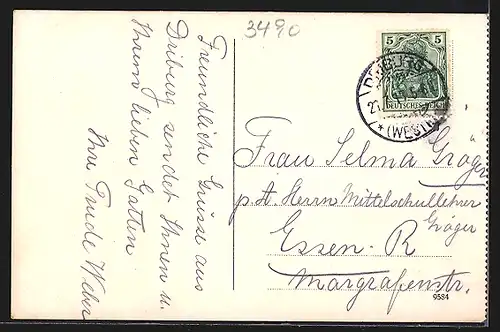 3490
Freundliche Grüsse aus
Driburg sendet Ihnen u.
Ihrem lieben Gatten
Ihre Trude Weber
5 5
DEUTSCHES REICH
DRIBURG
* (WESTF.)
Frau Selma Gräger
p. A. Herrn Mittelschullehrer
Gräger
Essen-R
Margrafenstr.
9584